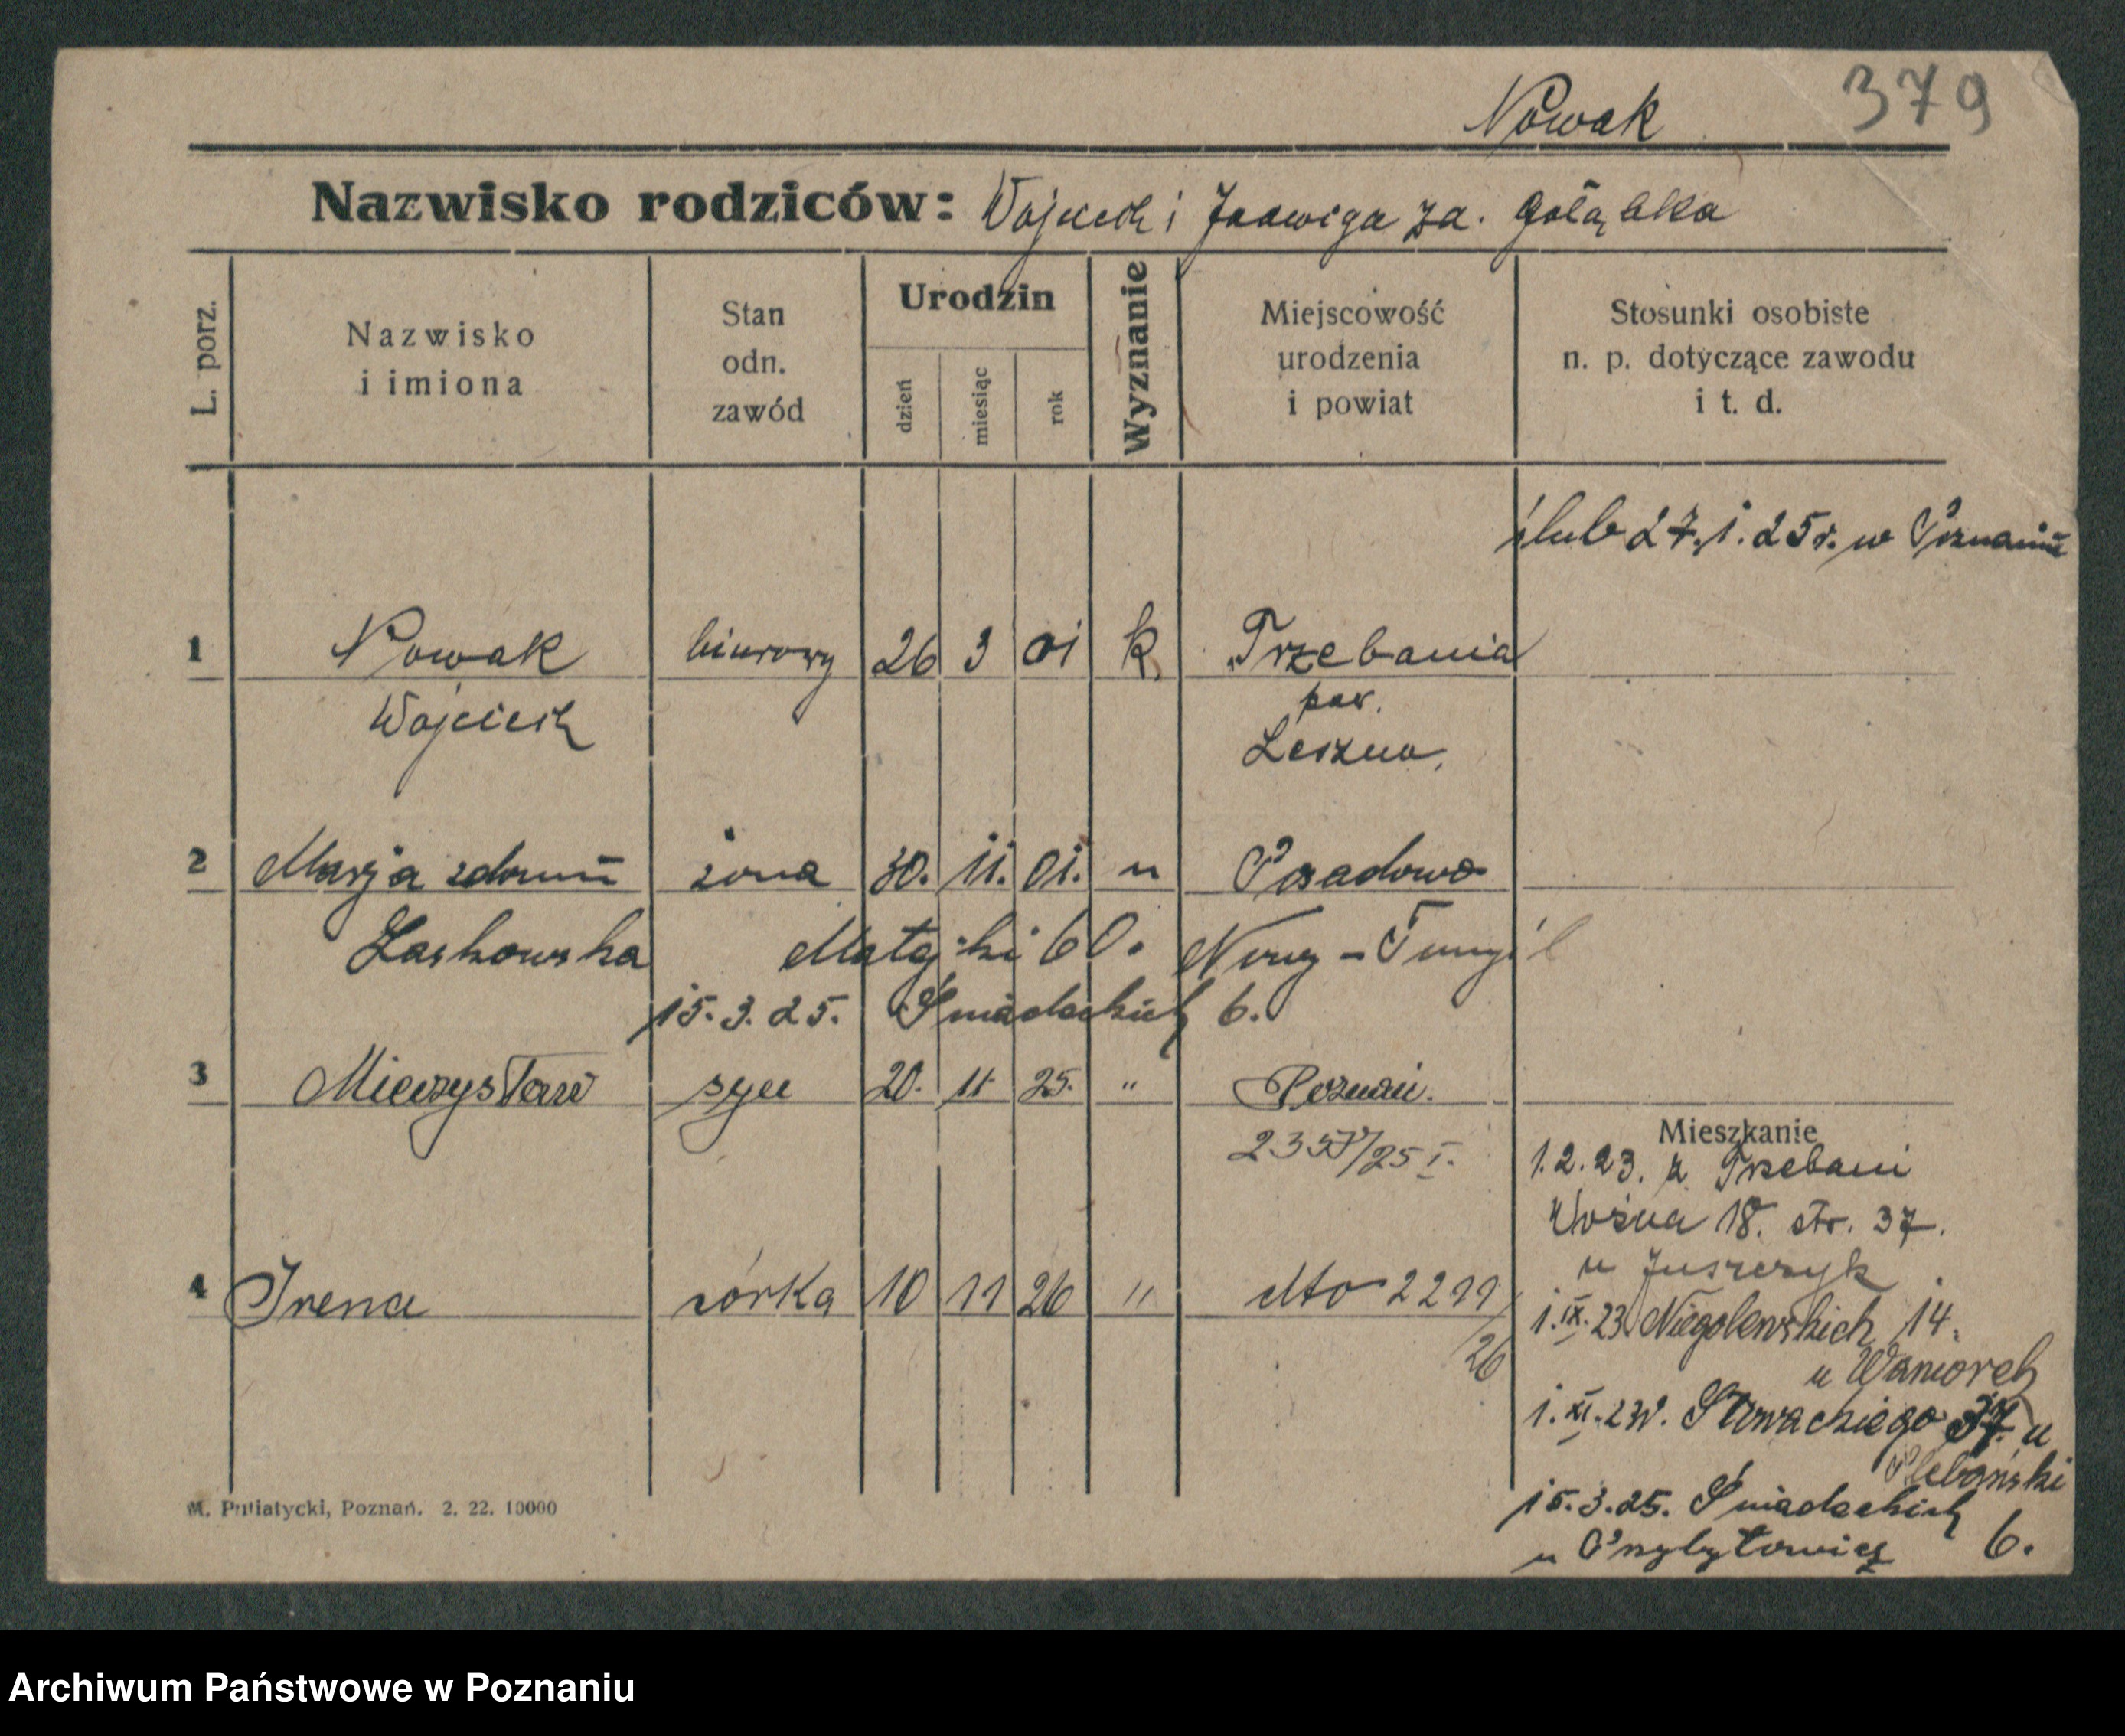 379
Nowak
Nazwisko rodziców: Wojciech i Jadwiga za. Gołąbka
L. porz.
Nazwisko i imiona
Stan odn. zawód
Urodzin
dzień
miesiąc
rok
Wyznanie
Miejscowość urodzenia i powiat
Stosunki osobiste n. p. dotyczące zawodu i t. d.
ślub 27.1.25r. w Poznaniu
1 Nowak biurowy 26 3 01 k Trzebania
Wojciech pow.
Leszno,
2 Marja zdomu żona 30. 11. 01. " Posadowo
Laskowska Matejki 60. Nowy-Tomyśl
15.3.25. Śniadeckich 6.
3 Mieczysław syn 20. 11 25. " Poznań.
2357/25 I.
4 Irena córka 10 11 26 " dto 2299/
26
Mieszkanie
1.2.23. z Trzebani
Woźna 18. str. 37.
u Juszczyk
1.IX.23 Niegolewskich 14.
u
1.XI.23r. Słowackiego 37. u
Plebański
15.3.25. Śniadeckich
u Przybyłowicz 6.
M. Putiatycki, Poznań. 2. 22. 10000
Archiwum Państwowe w Poznaniu